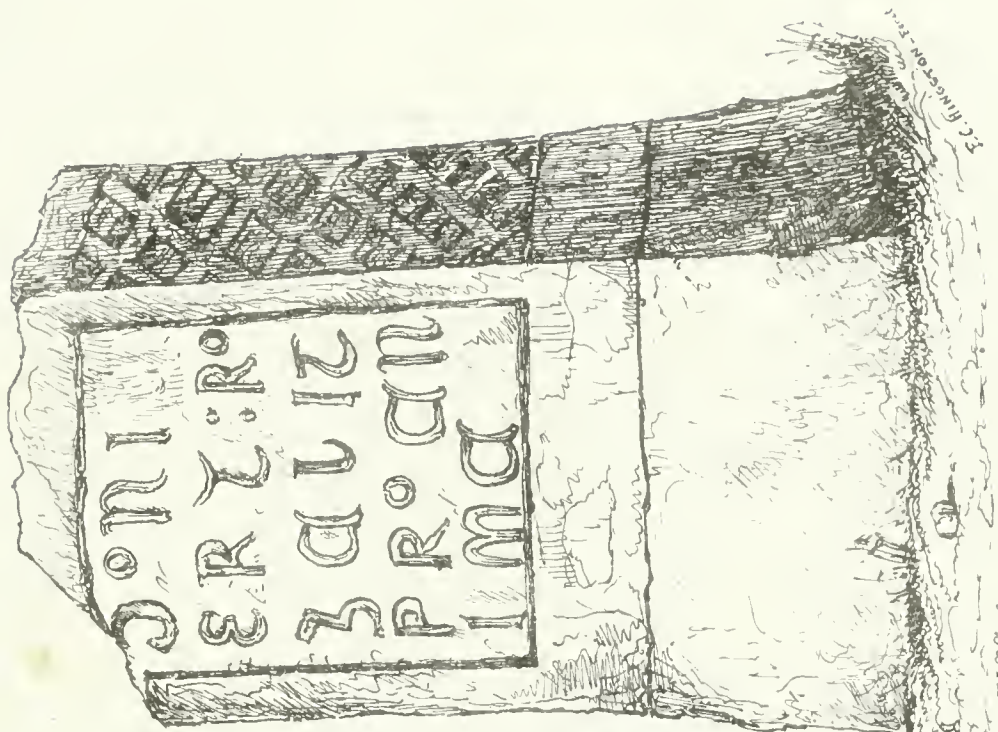 DONI
ERT:RO
GAUIT
PRO AN
IMA
F.C. HINGSTON